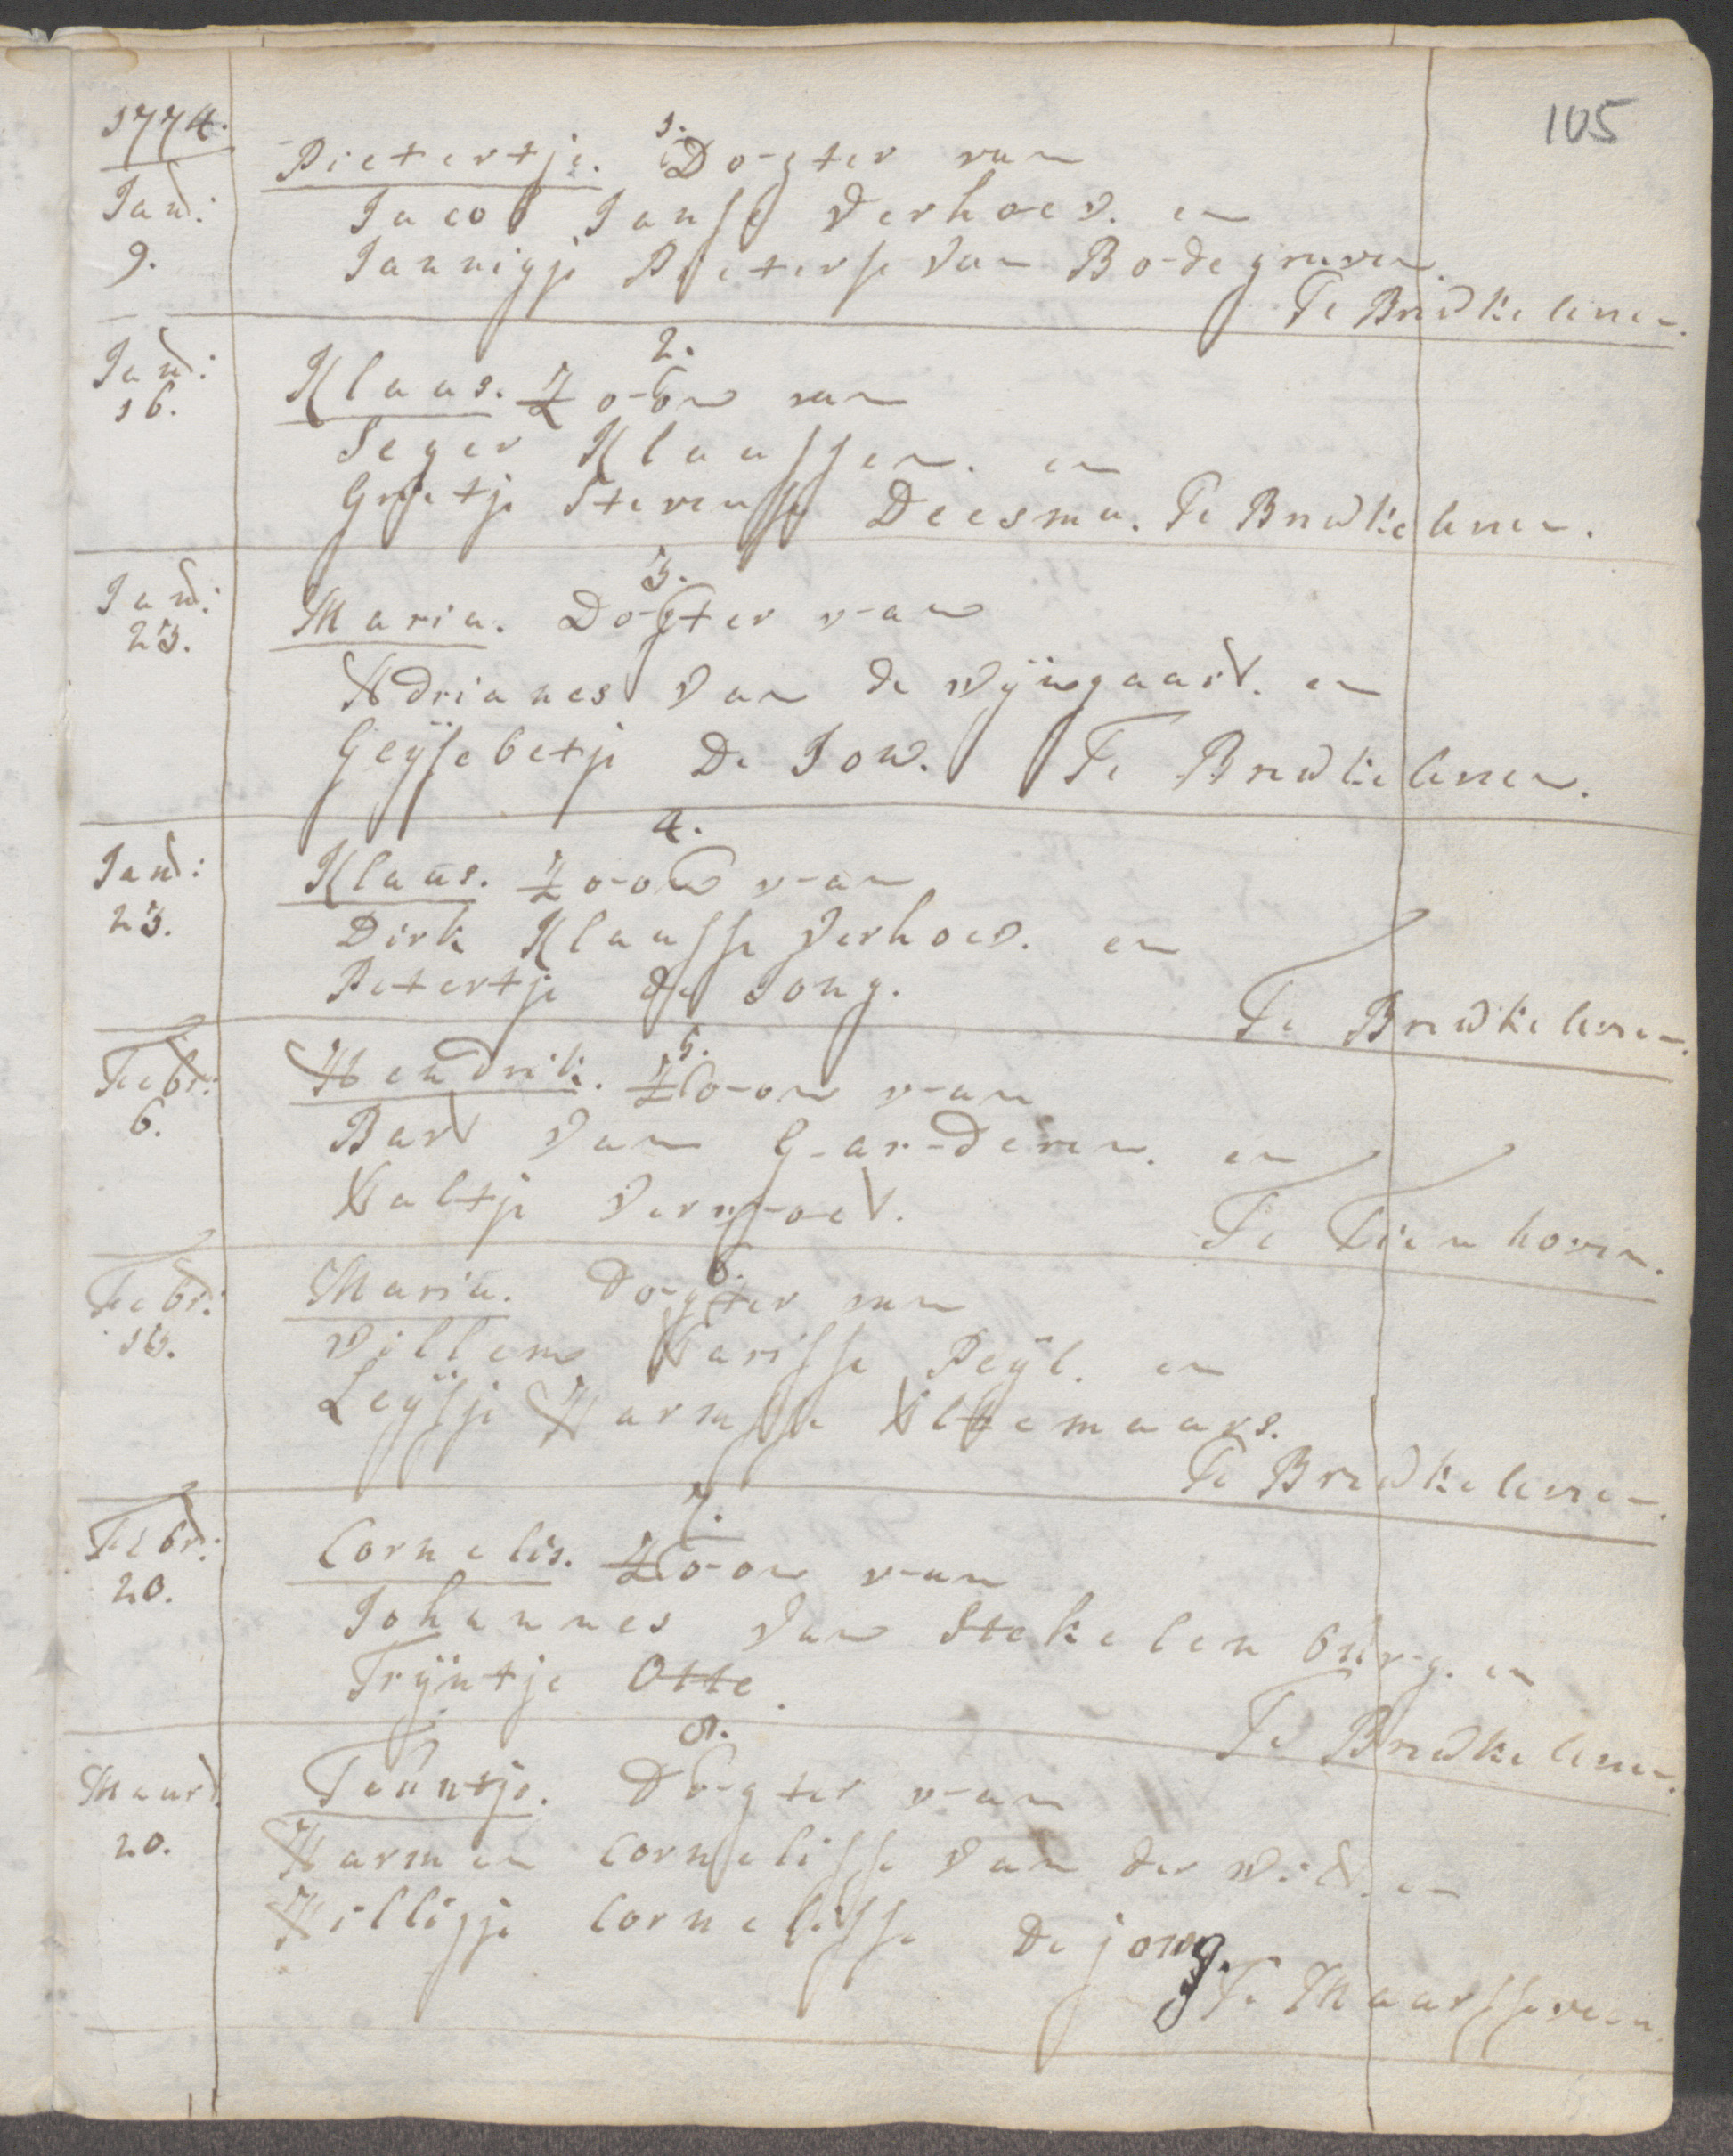 105
1774.
1.
Janu: Pietertje. Dogter van
9. Jacob Janse Verhoev. en
Jannigje Pieterse Van Bodegraven.
Te Breukeleveen.
2.
Janu: Klaas. Zoon van
16. Seger Klaassen. en
Grietje Stevense Deesma. Te Breukeleveen.
3.
Janu: Maria. Dogter van
23. Adrianes Van de Wÿngaard. en
Geÿsebetje De Jow. Te Breukeleveen.
4.
Janu: Klaas. Zoon van
23. Dirk Klaasse Verhoev. en
Petertje de Jong.
Te Breukeleveen.
5.
Febr: Hendrik. Zoon van
6. Bart Van Garderen. en
Aaltje Vermoet.
Te Tienhoven.
6.
Febr: Maria. Dogter van
Willem Aarisse Peÿl. en
Leÿsje Harmsse Altemaars.
Te Breukeleveen.
7.
Febr: Cornelis. Zoon van
20. Johannes Van Stekelenburg. en
Trÿntje Otte.
Te Breukeleveen.
8.
Maart Teuntje. Dogter van
20. Harmen Cornelisse Van der en
Hilligje Cornelisse De jong.
Te Maarsseveen.